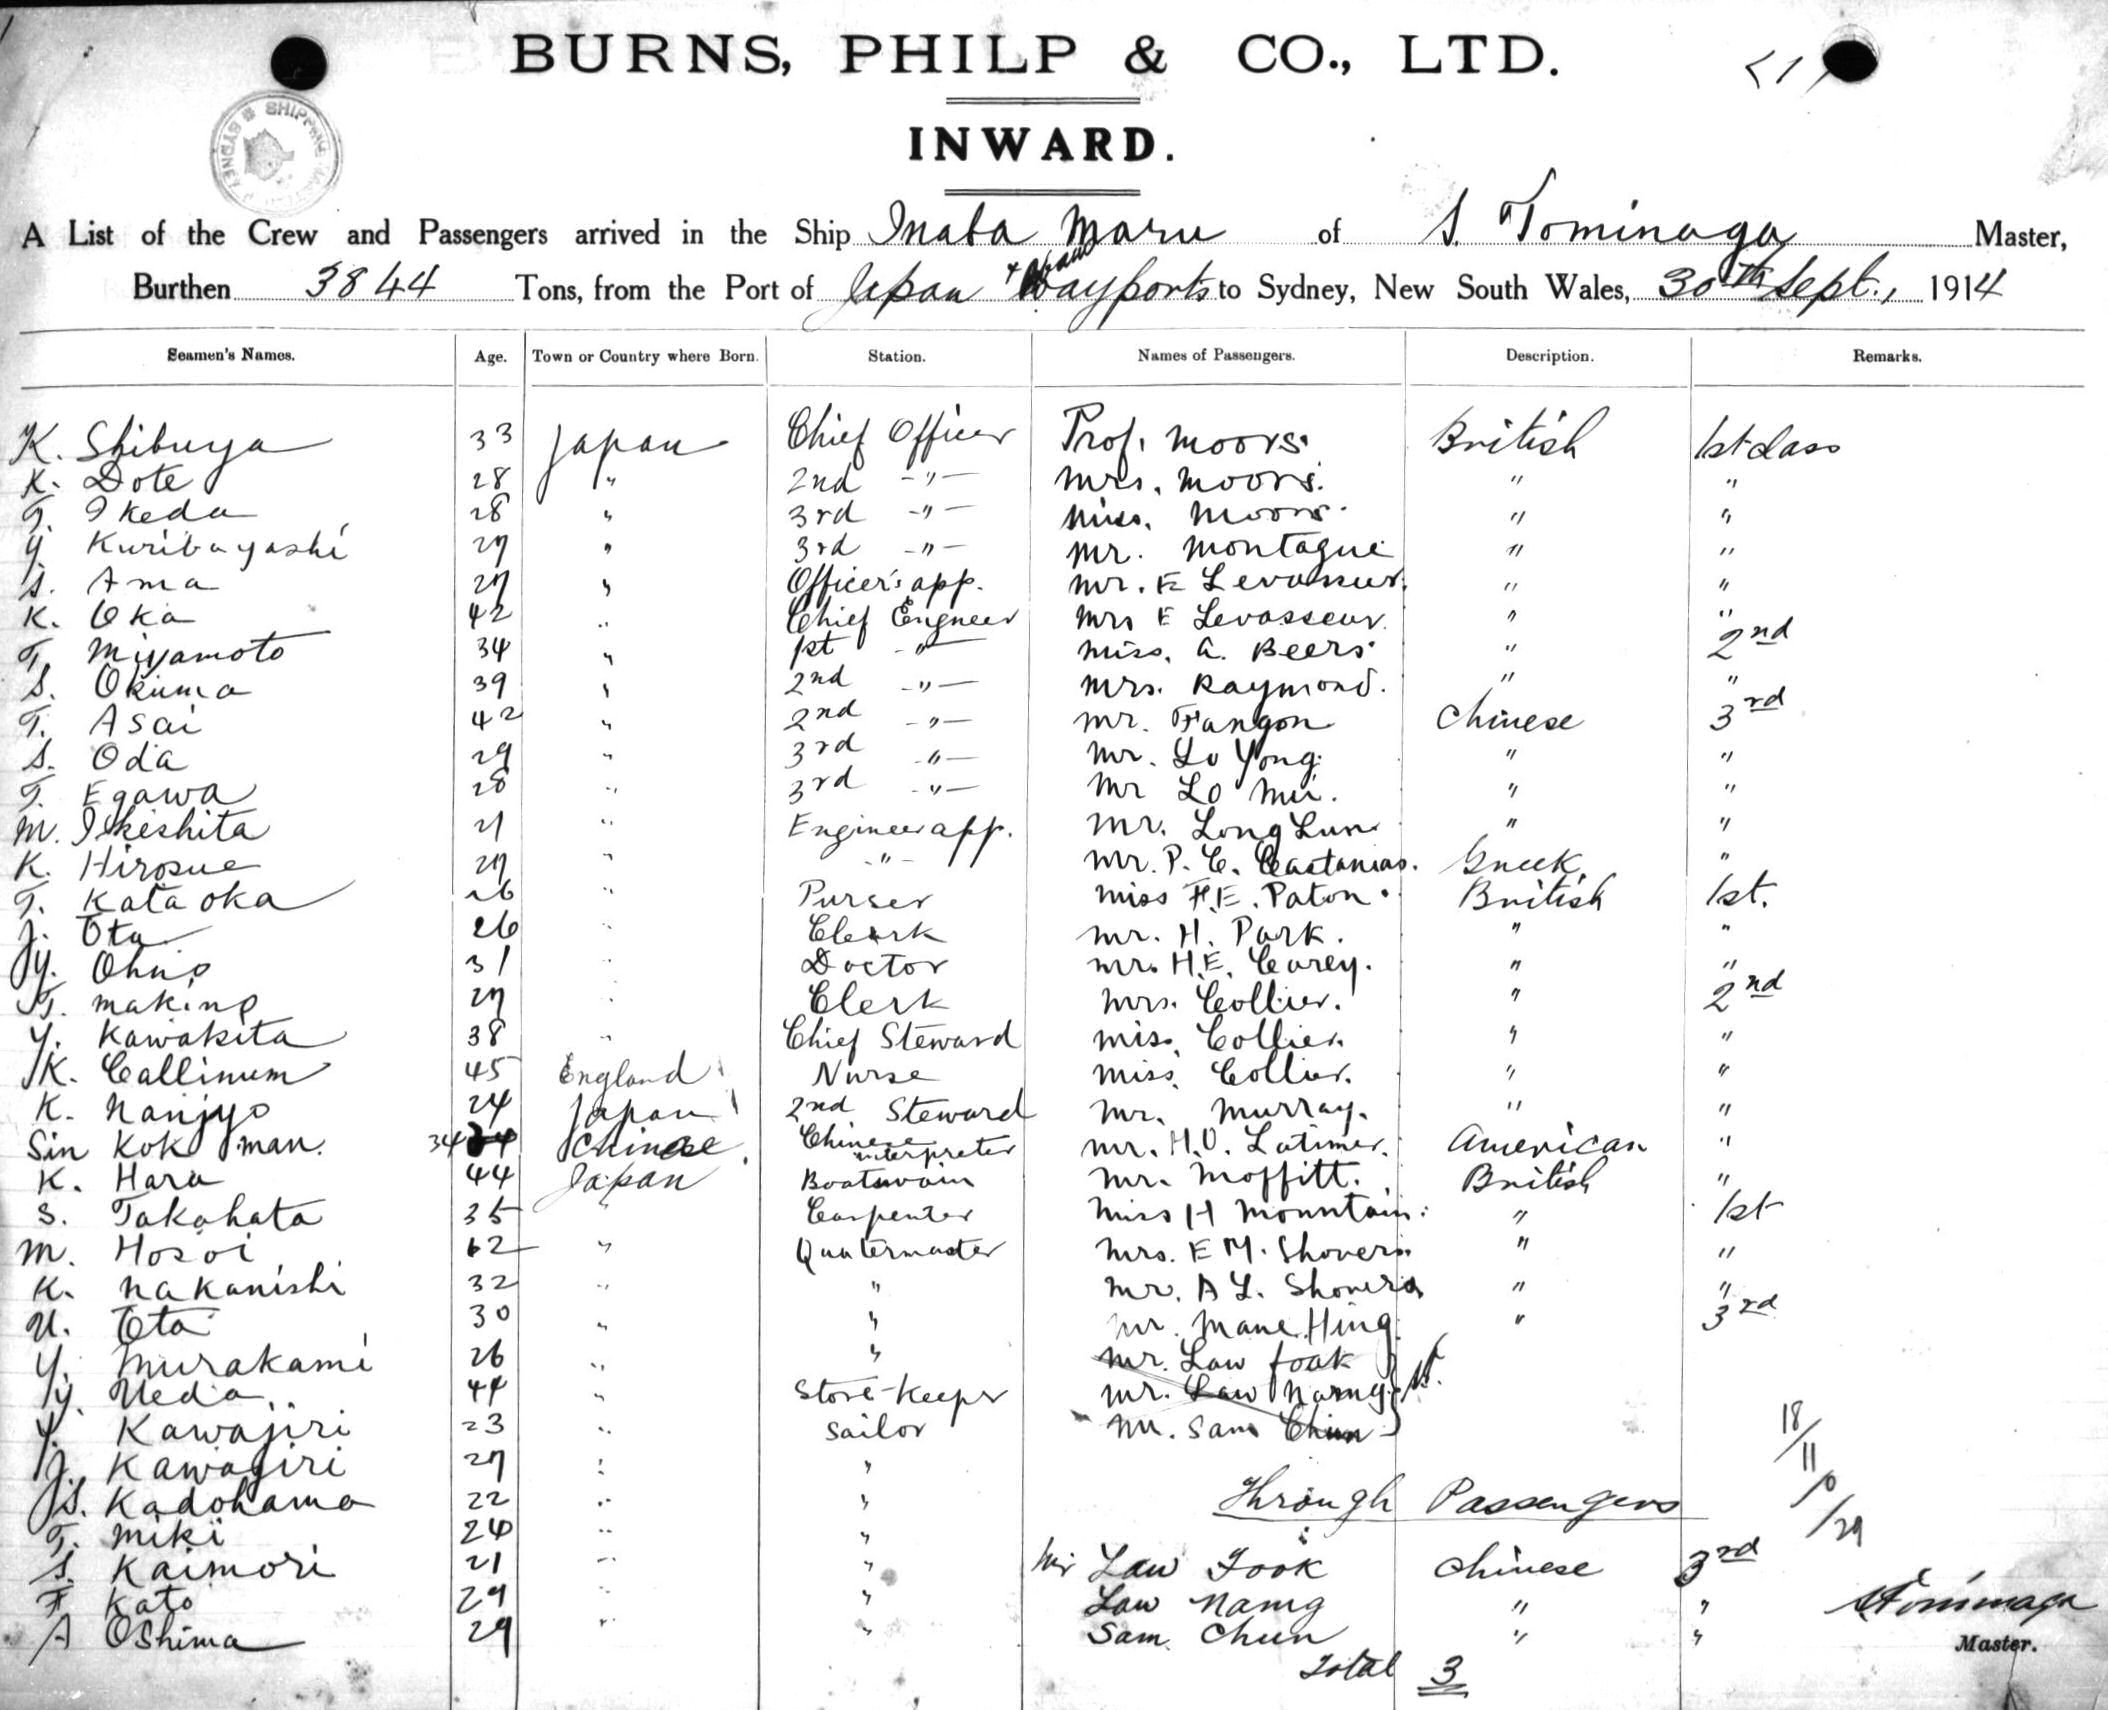 BURNS, PHILP & CO., LTD.
INWARD.
A List of the Crew and Passengers arrived in the Ship Inaba Maru of S. Tominaga Master,
Burthen 3844 Tons, from the Port of Japan + Wayports to Sydney, New South Wales, 30th Sept., 1914
Seamen's Names. Age. Town or Country where Born. Station. Names of Passengers. Description. Remarks.
K. Shibuya 33 Japan Chief Officer Prof. Moors. British 1st Class
K. Dote 28 " 2nd -"- Mrs. Moors. " "
T. Ikeda 28 " 3rd -"- Miss. Moors. " "
Y Kuribayashi 27 " 3rd -"- Mr. Montague " "
S. Ama 27 " Officer's app. Mr. E Levasseur. " "
K. Oka 42 " Chief Engneer Mrs E Levasseur. " "
T. Miyamoto 34 " 1st -"- Miss. A. Beers " 2nd
S. Okuma 39 " 2nd -"- Mrs. Raymond. " "
T. Asai 42 " 2nd -"- Mr. Fangon Chinese 3rd
S. Oda 29 " 3rd -"- Mr. Lo Yong. " "
T. Egawa 28 " 3rd -"- Mr Lo Mui. " "
M. Ikeshita 21 " Engineer app. Mr. Long Lun " "
K. Hirosue 27 " -"- Mr. P. C. Castanias. Greek "
T. Kataoka 26 " Purser Miss F.E. Paton. British 1st.
J. Ota 26 " Clerk Mr. H. Park. " "
Y. Ohno 31 " Doctor Mr. H.E. Carey. " "
T. Makino 27 " Clerk Mrs. Collier. " 2nd
Y. Kawakita 38 " Chief Steward Miss. Collier. " "
K. Callinum 45 England Nurse Miss. Collier. " "
K. Nanjyo 24 Japan 2nd Steward Mr. Murray. " "
Sin Kok man. 34 Chinese Chinese interpreter Mr. H.O. Latimer. American "
K. Hara 44 Japan Boatswain Mr. Moffitt. British "
S. Takahata 35 " Carpenter Miss H Mountain. " 1st
M. Hosoi 62 " Quatermaster Mrs. E M. Shovers " "
K. Nakanishi 32 " " Mr. A L. Shovers " "
U. Ota 30 " " Mr. Mane Hing " 3rd
Y. Murakami 26 " " Mr. Law fook
Y. Ueda 44 " Store-Keeper Mr. Law Namg
Y. Kawajiri 23 " Sailor Mr. Sam Chun
J. Kawajiri 27 " " 18/11/29
S. Kadohama 22 " " Through Passengers
T. Miki 24 " "
S. Kaimori 21 " " Mr Law Fook Chinese 3rd
F Kato 29 " " Law Namg " "
A Oshima 29 " " Sam Chun " "
S Tominaga
Master.
Total 3